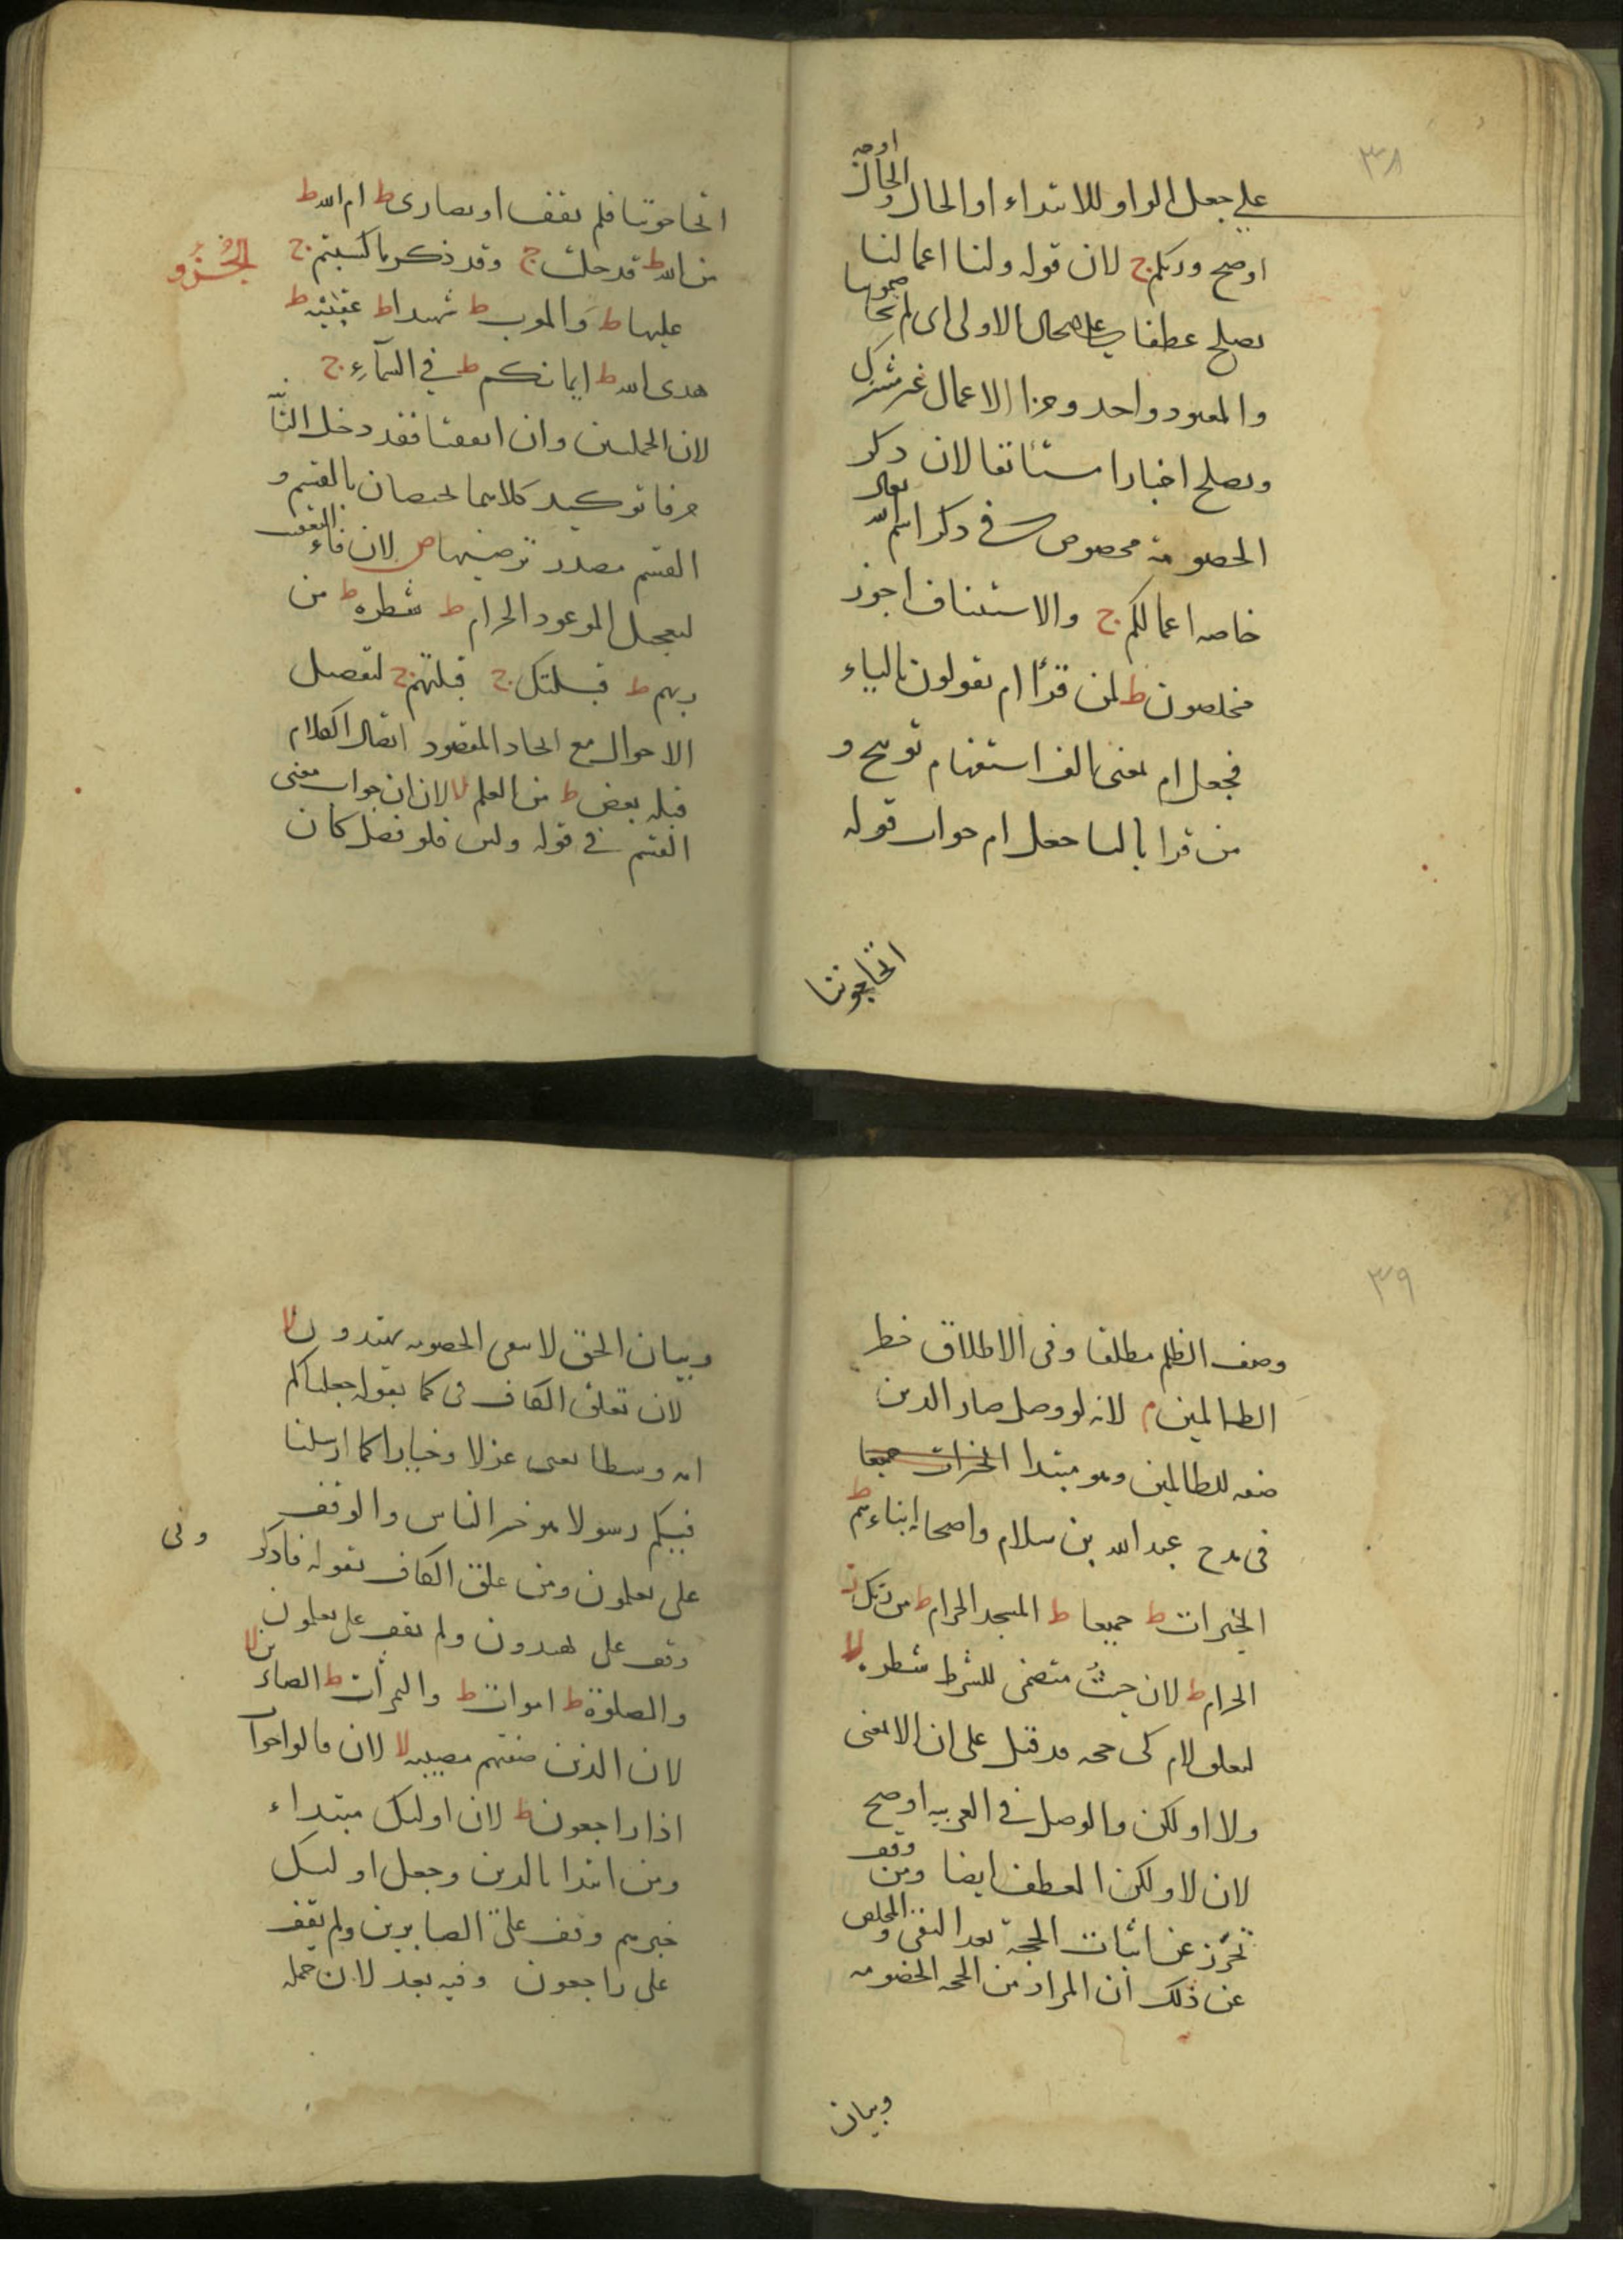 ٣٨
اوجه
على جعل الواو للابتداء او الحال والحال
اوضح وربكم ج لان قوله ولنا اعمالنا
يصلح عطفا على الحال الاولى اى لم تحاجوننا
والمعبود واحد وجزا الاعمال غير مشترك
ويصلح اخبارا مستأنفا لان ذكر
الخصومة مخصوص فى ذكر اسم الله تعالى
خاصه اعمالكم ج والاستئناف اجوز
مخلصون ط لمن قرأ ام يقولون بالياء
فجعل ام بمعنى الف استفهام توبيخ و
من قرا بالتا جعل ام جواب قوله
اتحاجوننا
اتحاجوننا فلم يقف او نصارى ط ام الله ط
من الله ط قد خلت ج وقد ذكر ما كسبتم ج
الجُزْو
عليها ط والمغرب ط شهيدا ط عقبيه ط
هدى الله ط ايمانكم ط فى السمآءِ ج
لان الجملتين وان اتفقتا فقد دخل الثا
حرفا توكيد كلاهما يختصان بالقسم و
القسم مصدر ترضيها ص لان فاء التعقيب
لتعجيل الموعود الحرام ط شطره ط من
ربهم ط قبلتك ج قبلتهم ج لتفصيل
الاحوال مع اتحاد المقصود اتصال الكلام
قبله بعض ط من العلم لا لان ان جواب معنى
القسم فى قوله ولئن فلو فصل كان
٣٩
وصف الظلم مطلقا وفى الاطلاق خطر
الظالمين م لانه لو وصل صار الذين
صفه للظالمين وهو مبتدا الخيرات جميعا
فى مدح عبد الله بن سلام واصحابه ابناءهم ط
الخيرات ط جميعا ط المسجد الحرام ط من ربك ط
الحرام ط لان حيثُ متضمن للشرط شطره لا
لتعلق لام كى حجه قد قيل على ان الا بمعنى
ولا او لكن والوصل فى العربيه اوضح
لان لا ولكن العطف ايضا ومن وقف
تحرّز عن اثبات الحجة بعد النفى والمخلص
عن ذلك ان المراد من الحجه الخصومه
وبيان
وبيان الحق لا ينفى الخصومه يهتدون لا
لان تعلق الكاف فى كما بقوله جعلناكم
امه وسطا يعنى عدلا وخيارا كما ارسلنا
فيكم رسولا هو خير الناس والوقف
على تعلمون ومن علق الكاف بقوله فاذكر
ونى
وقف على تهتدون ولم يقف على تعلمون
والصلوة ط اموات ط والثمرات ط الصابرين لا
لان الذين صفتهم مصيبه لا لان قالوا جواب
اذا راجعون ط لان اولئك مبتداء
ومن ابتدا بالذين وجعل اولئك
خبرهم وقف على الصابرين ولم يقف
على راجعون وفيه بعد لان جمله